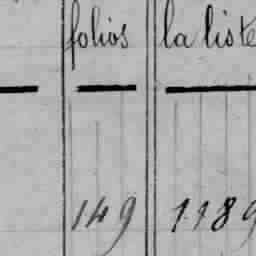 folios la liste
149 1189